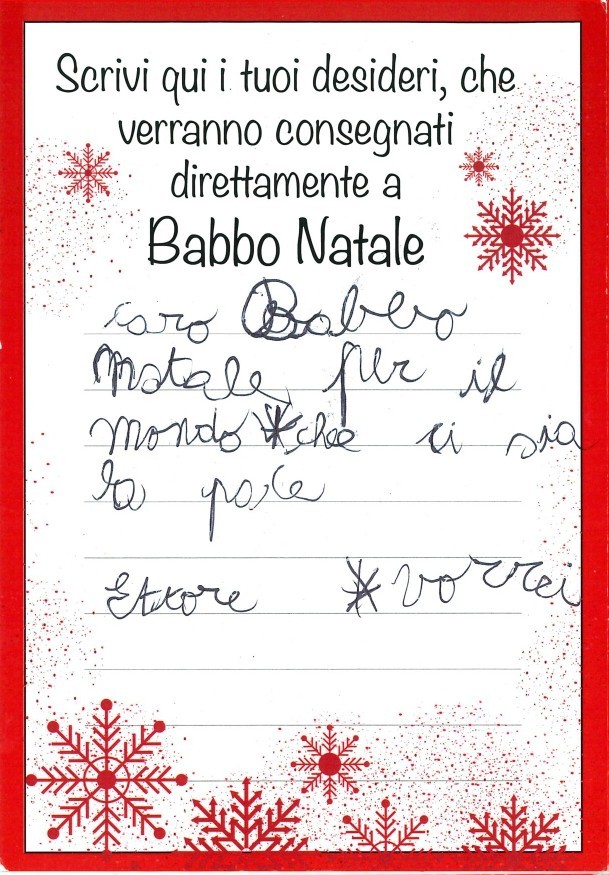 Scrivi qui i tuoi desideri, che
verranno consegnati
direttamente a
Babbo Natale
caro Babbo
Natale per il
mondo *che ci sia
la pace
Ettore *vorrei